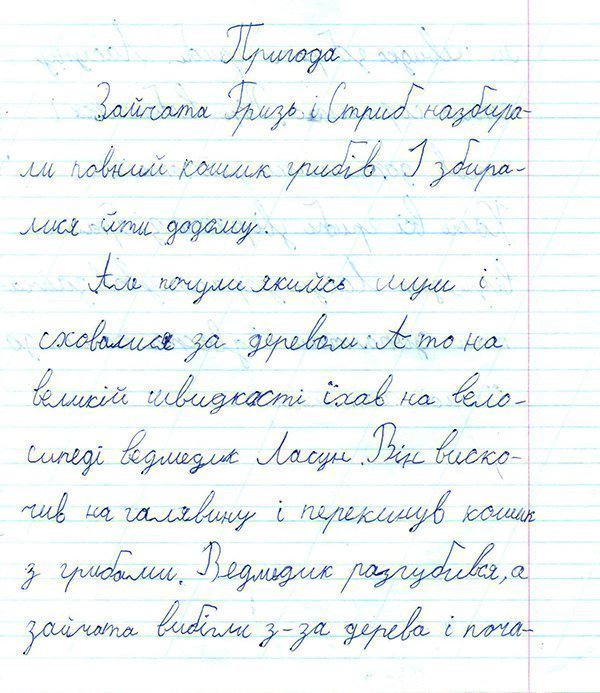 Пригода
Зайчата Гризь і Стриб назбира-
ли повний кошик грибів. І збира-
лися йти додому.
Але почули якийсь шум і
сховалися за деревом. А то на
великій швидкості їхав на вело-
сипеді ведмедик Ласун. Він виско-
чив на галявину і перекинув кошик
з грибами. Ведмедик разгубився, а
зайчата вибігли з-за дерева і поча-